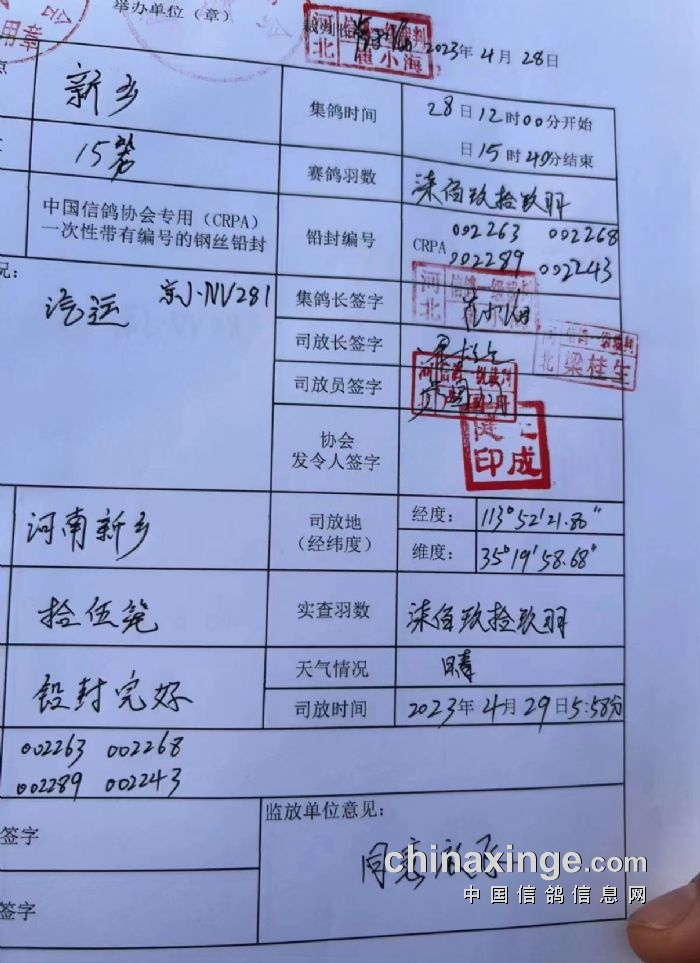 举办单位（章）
用章
2023年4月28日
河北
小海
点
新乡
集鸽时间
28日12时00分开始
日15时40分结束
15笼
赛鸽羽数
柒佰玖拾玖羽
中国信鸽协会专用（CRPA）
一次性带有编号的钢丝铅封
铅封编号
CRPA
002263 002268
002289 002243
况：
汽运
集鸽长签字
河北
信鸽一级裁判
司放长签字
河北
信鸽一级裁判
梁桂生
司放员签字
协会
发令人签字
印成
河南新乡
司放地
（经纬度）
经度：
113°52'21.86"
维度：
35°19'58.68"
拾伍笼
实查羽数
柒佰玖拾玖羽
铅封完好
天气情况
晴
司放时间
2023年4月29日5:58分
002263 002268
002289 002243
签字
监放单位意见：
同意放飞
签字
chinaxinge.com
中国信鸽信息网